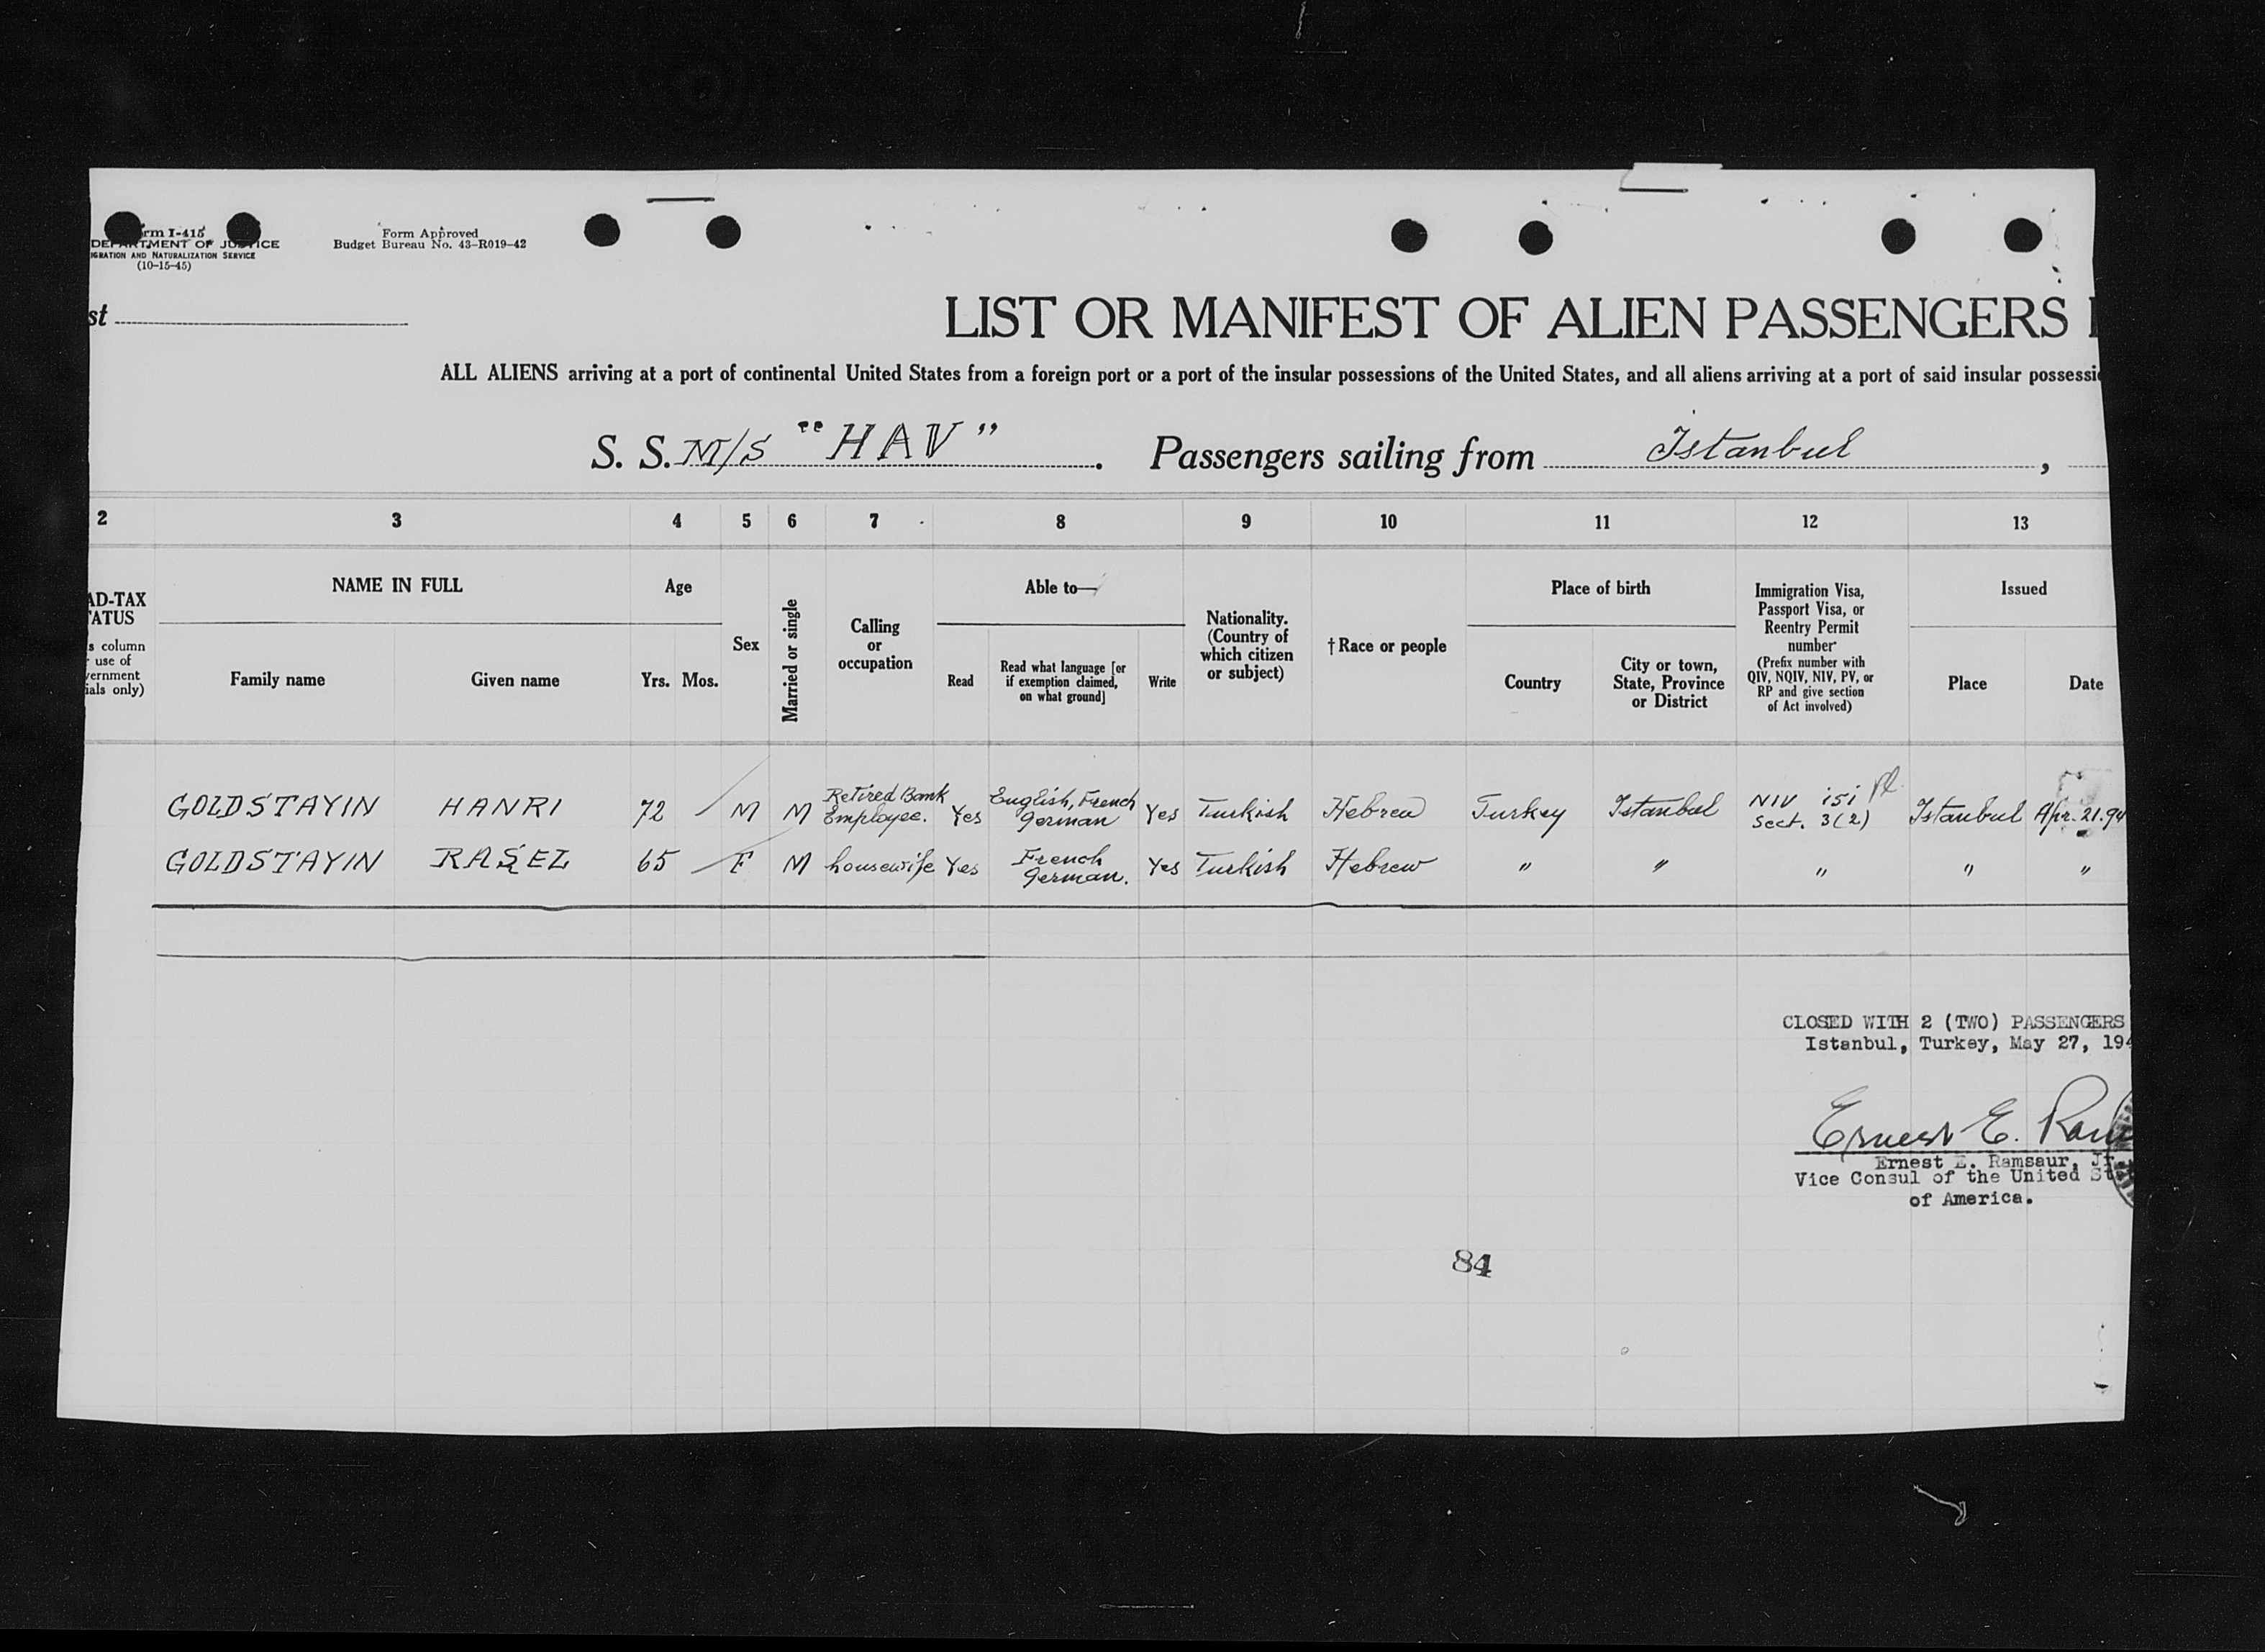 rm I-415 Form Approved
DEPARTMENT OF JUSTICE Budget Bureau No. 43-R019-42
IGRATION AND NATURALIZATION SERVICE
(10-15-45)
st
LIST OR MANIFEST OF ALIEN PASSENGERS
ALL ALIENS arriving at a port of continental United States from a foreign port or a port of the insular possessions of the United States, and all aliens arriving at a port of said insular possessi
S. S. M/S "HAV". Passengers sailing from Istanbul,
2 3 4 5 6 7 8 9 10 11 12 13
AD-TAX
TATUS
s column
use of
vernment
ials only)
NAME IN FULL
Family name Given name
Age
Yrs. Mos.
Sex
Married or single
Calling
or
occupation
Able to—
Read
Read what language [or
if exemption claimed,
on what ground]
Write
Nationality.
(Country of
which citizen
or subject)
† Race or people
Place of birth
Country
City or town,
State, Province
or District
Immigration Visa,
Passport Visa, or
Reentry Permit
number
(Prefix number with
QIV, NQIV, NIV, PV, or
RP and give section
of Act involved)
Issued
Place Date
GOLDSTAYIN HANRI 72 M M Retired Bank Employee. Yes English, French German Yes Turkish Hebrew Turkey Istanbul NIV 151 Sect. 3(2) Istanbul Apr. 21.94
GOLDSTAYIN RAŞEL 65 F M housewife Yes French German. Yes Turkish Hebrew " " " " "
CLOSED WITH 2 (TWO) PASSENGERS
Istanbul, Turkey, May 27, 194
Ernest E. Ram
Ernest E. Ramsaur, Jr.
Vice Consul of the United St
of America.
84